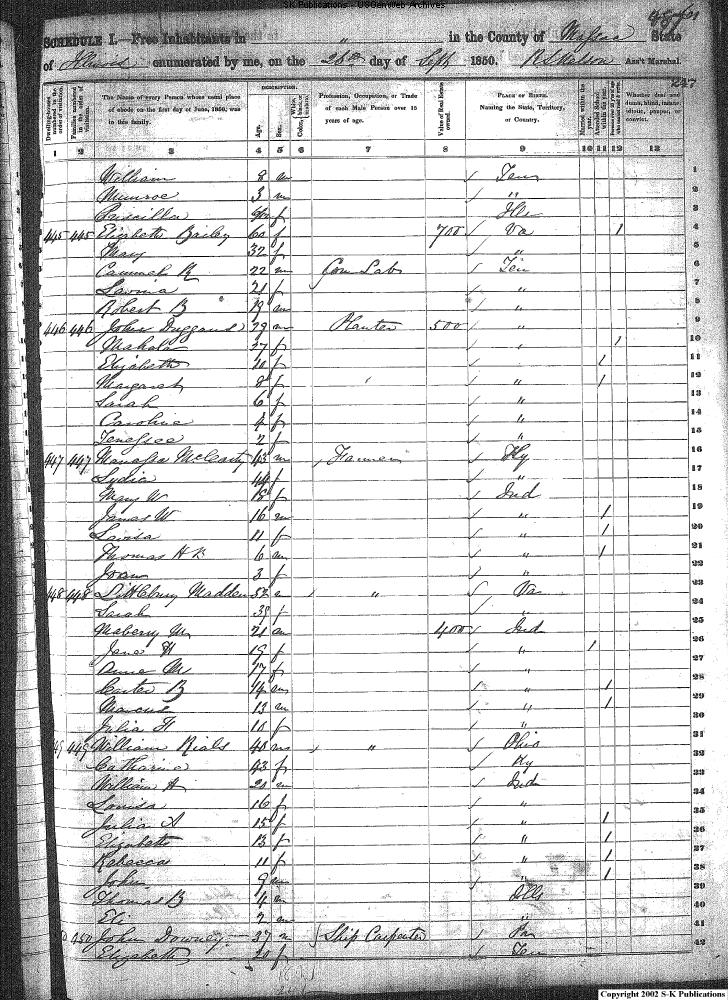 SK Publications - USGenWeb Archives
SCHEDULE I.—Free Inhabitants in " in the County of Massac State
of Illinois enumerated by me, on the 26th day of Sept 1850. Ass't Marshal.
227
DESCRIPTION.
Dwelling-houses numbered in the order of visitation.
Families numbered in the order of visitation.
The Name of every Person whose usual place of abode on the first day of June, 1850, was in this family.
Age.
Sex.
Color, White, black, or mulatto.
Profession, Occupation, or Trade of each Male Person over 15 years of age.
Value of Real Estate owned.
PLACE OF BIRTH. Naming the State, Territory, or Country.
Married within the year.
Attended School within the year.
Persons over 20 y'rs of age who cannot read & write.
Whether deaf and dumb, blind, insane, idiotic, pauper, or convict.
1 2 3 4 5 6 7 8 9 10 11 12 13
William 8 m Ten 1
Munroe 3 m " 2
Priscilla f Ills 3
445 445 Elizabeth Bailey 60 f 700 Va / 4
Mary 32 f " 5
22 m Com Lab Ten 6
21 f " 7
Robert B m " 8
446 446 John Duggans 29 m Planter 500 " 9
Mahala 27 f " / 10
Elizabeth 10 f / 11
Margaret 8 f " / 12
Sarah 6 f " 13
Caroline 4 f " 14
Tenessee 2 f " 15
447 447 Manassa McCarty 43 m Farmer Ky 16
Lydia 44 f " 17
Mary W 18 f Ind 18
James W 16 m " / 19
Lavisa 11 f " / 20
Thomas H B 6 m " / 21
Joan 3 f " 22
448 448 Littlebury Madden 52 m " Va 23
Sarah 39 f " 24
Maberry M 21 m 400 Ind 25
Jane H 19 f " / 26
Anne M 17 f " 27
Carter B 14 m " / 28
Marcus 13 m " / 29
Julia F 10 f " 30
449 William Rials 40 m " Ohio 31
Catharine 43 f Ky 32
William H 20 m Ind 33
Louisa 16 f " 34
Julia A 15 f " / 35
Elizabeth 13 f " / 36
Rebecca 11 f " / 37
John 9 m " / 38
Thomas B 4 m Ills 39
Eli 2 m " 40
450 John Downey 37 m Ship Carpenter Pa 41
Elizabeth f Ten 42
Copyright 2002 S-K Publications